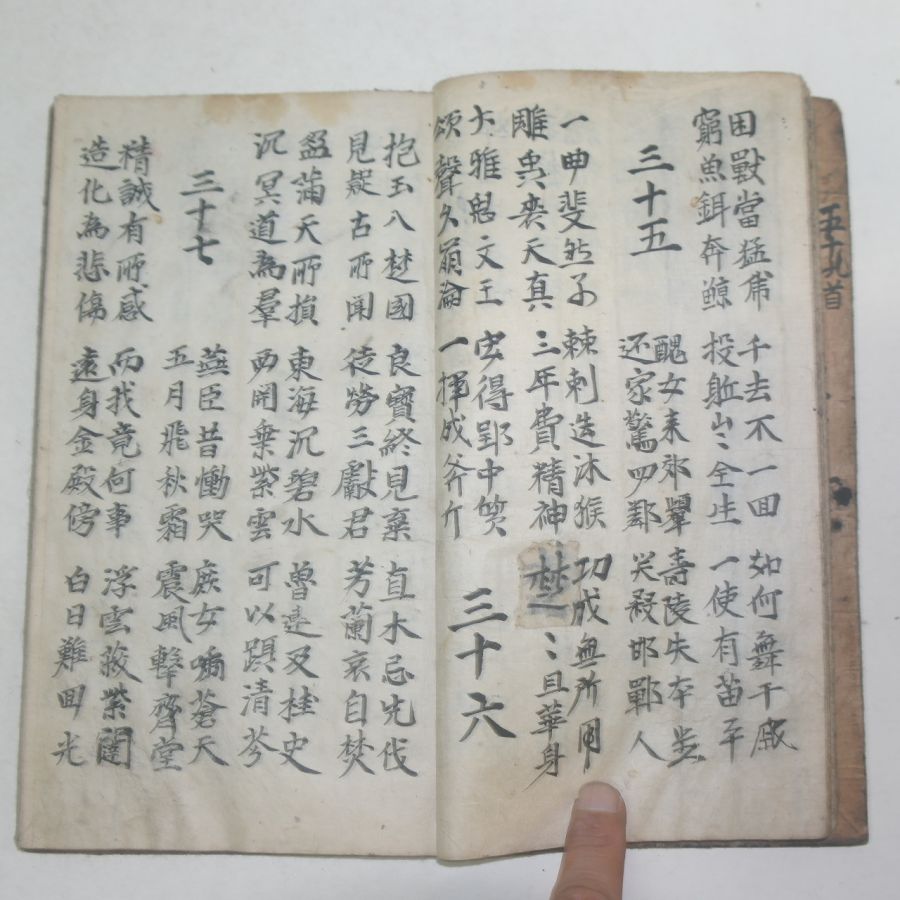 困獸當猛虎
窮魚餌奔鯨
千去不一囬
投軀豈全生
如何舞干戚
一使有苗平
三十五
醜女来效顰
还家驚四鄰
壽陵失本步
笑殺邯鄲人
一曲斐然子
雕虫喪天真
棘刺造沐猴
三年費精神
功成無所用
楚〻且華身
大雅思文王
頌聲久崩淪
安得郢中質
一揮成斧斤
三十六
抱玉入楚國
見疑古所聞
良寶終見棄
徒勞三獻君
直木忌先伐
芳蘭哀自焚
盈滿天所損
沉冥道為羣
東海沉碧水
西関乗紫雲
魯連及柱史
可以躡清芬
三十七
燕臣昔慟哭
五月飛秋霜
庶女號蒼天
震風擊齊堂
精誠有所感
造化為悲傷
而我竟何事
遠身金殿傍
浮雲蔽紫闥
白日難囬光
五十九首